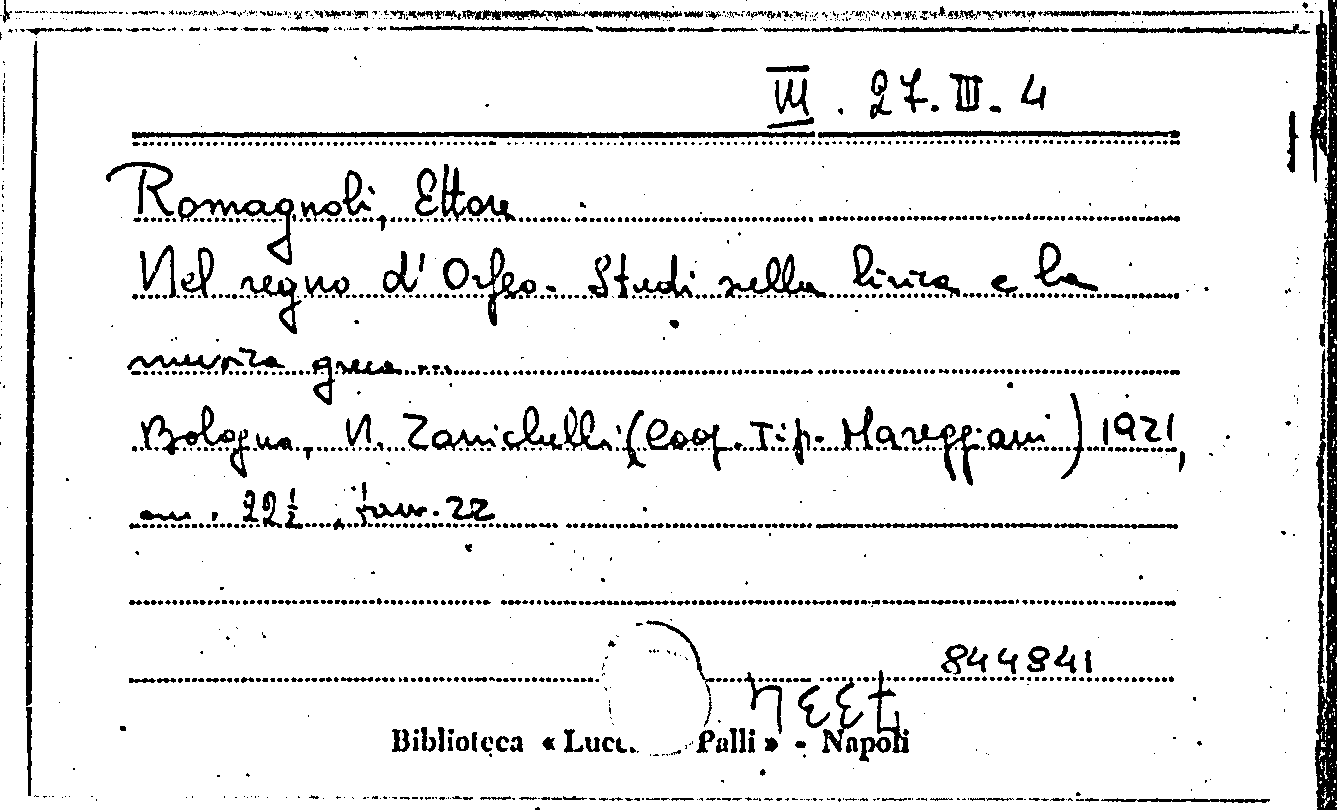 VIII. 27. III. 4
Romagnoli, Ettore
Nel regno d'Orfeo. Studi sulla lirica e la
musica greca...
Bologna, N. Zanichelli (Coop. Tip. Mareggiani) 1921,
cm. 22½, tavv. 22
844841
7334
Biblioteca « Lucc Palli » - Napoli